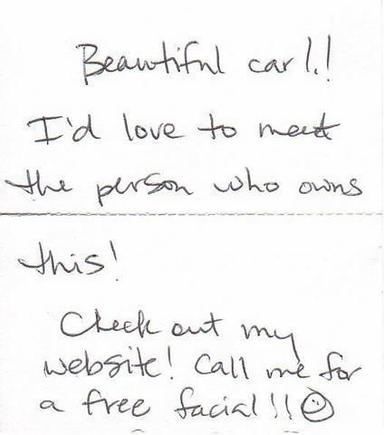 Beautiful car!!
I'd love to meet
the person who owns
this!
Check out my
website! Call me for
a free facial!!☺